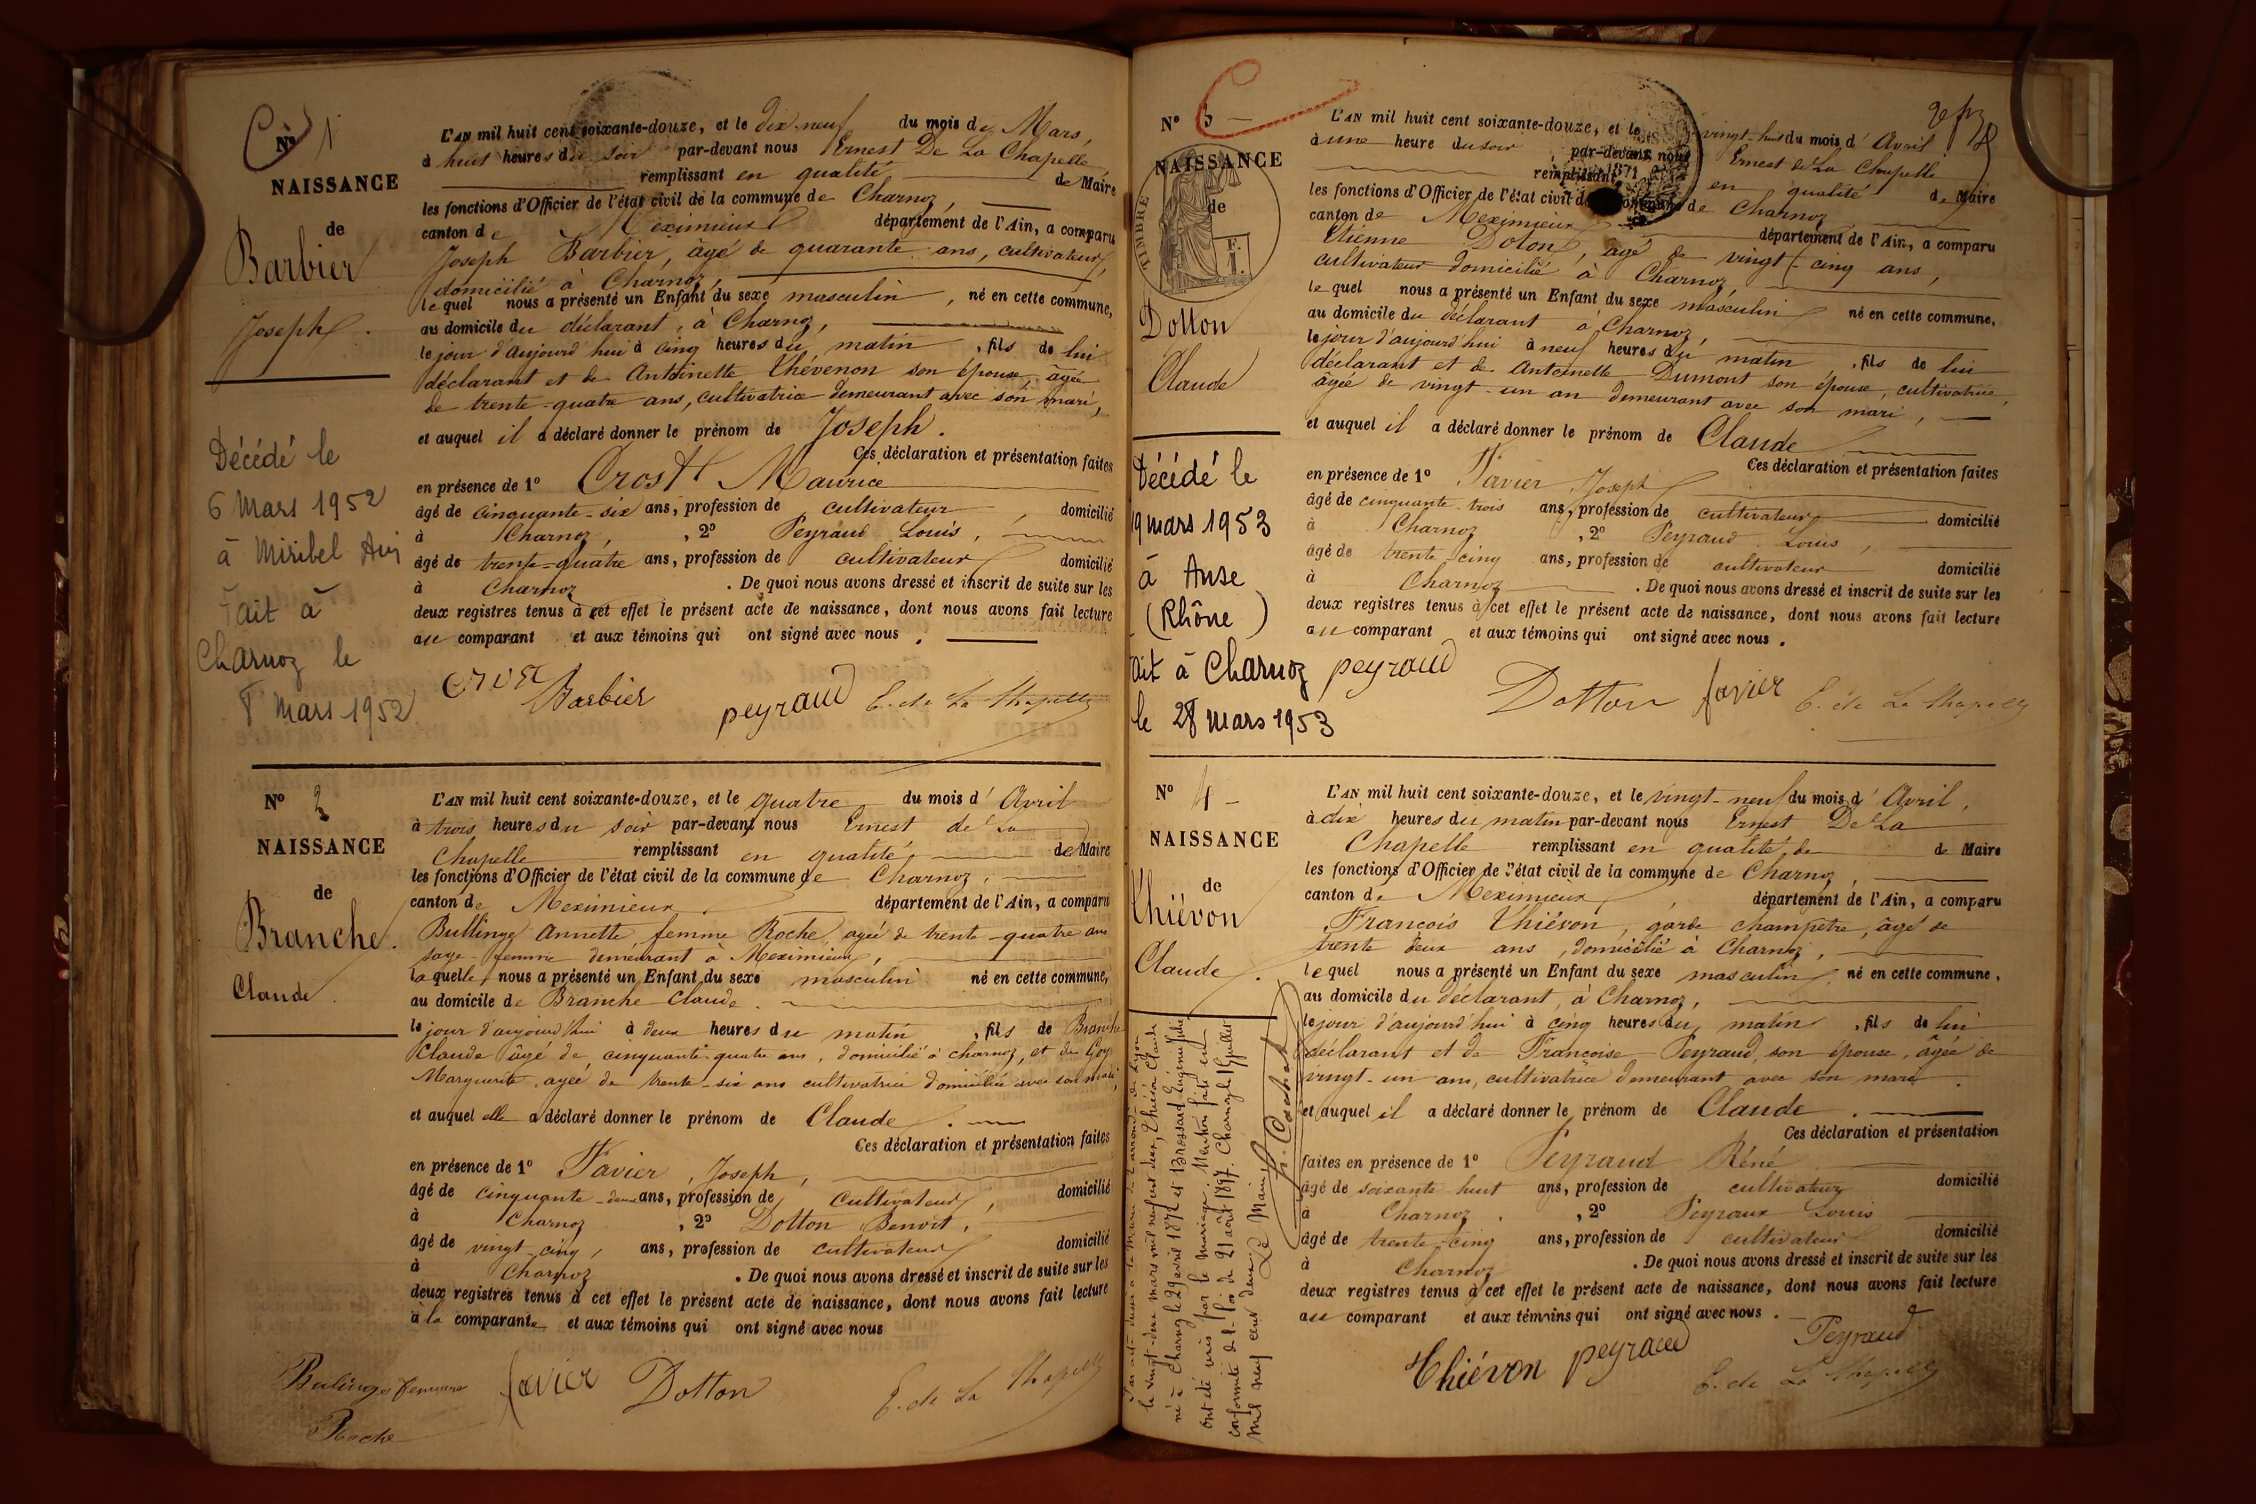 N° 1
NAISSANCE
de
Barbier
Joseph
Décédé le
6 Mars 1952
à Miribel Ain
Fait à
Charnoz le
8 Mars 1952
L'AN mil huit cent soixante-douze, et le dix neuf du mois de Mars,
à huit heures du soir par-devant nous Ernest De La Chapelle
remplissant en qualité de Maire
les fonctions d'Officier de l'état civil de la commune de Charnoz,
canton de Meximieux département de l'Ain, a comparu
Joseph Barbier, âgé de quarante ans, cultivateur,
domicilié à Charnoz,
lequel nous a présenté un Enfant du sexe masculin, né en cette commune,
au domicile du déclarant, à Charnoz,
le jour d'aujourd'hui à cinq heures du matin, fils de lui
déclarant et de Antoinette Thévenon son épouse, âgée
de trente-quatre ans, cultivatrice demeurant avec son mari,
et auquel il a déclaré donner le prénom de Joseph.
Ces déclaration et présentation faites
en présence de 1° Crost Maurice
âgé de cinquante-six ans, profession de cultivateur, domicilié
à Charnoz, , 2° Peyraud Louis,
âgé de trente-quatre ans, profession de cultivateur domicilié
à Charnoz . De quoi nous avons dressé et inscrit de suite sur les
deux registres tenus à cet effet le présent acte de naissance, dont nous avons fait lecture
au comparant et aux témoins qui ont signé avec nous.
Barbier peyraud E. de La Chapelle
N° 2
NAISSANCE
de
Branche.
Claude.
L'AN mil huit cent soixante-douze, et le quatre du mois d'Avril
à trois heures du soir par-devant nous Ernest de La
Chapelle remplissant en qualité de Maire
les fonctions d'Officier de l'état civil de la commune de Charnoz,
canton de Meximieux, département de l'Ain, a comparu
Bullinge Annette, femme Roche, agée de trente-quatre ans
sage-femme demeurant à Meximieux,
laquelle nous a présenté un Enfant du sexe masculin né en cette commune,
au domicile de Branche Claude.
le jour d'aujourd'hui à deux heures du matin, fils de Branche
Claude âgé de cinquante-quatre ans, domicilié à charnoz, et de Goy
Marguerite, agée de trente-six ans cultivatrice domiciliée avec son mari,
et auquel elle a déclaré donner le prénom de Claude.
Ces déclaration et présentation faites
en présence de 1° Favier, Joseph,
âgé de cinquante-deux ans, profession de cultivateur, domicilié
à Charnoz , 2° Dotton Benoit,
âgé de vingt-cinq, ans, profession de cultivateur domicilié
à Charnoz . De quoi nous avons dressé et inscrit de suite sur les
deux registres tenus à cet effet le présent acte de naissance, dont nous avons fait lecture
à la comparante et aux témoins qui ont signé avec nous
Bulinge femme favier Dotton E. de La Chapelle
Roche
N° 3 -
NAISSANCE
de
TIMBRE
Dotton
Claude
Décédé le
19 mars 1953
à Anse
(Rhône)
Fait à Charnoz
le 28 mars 1953
L'AN mil huit cent soixante-douze, et le vingt-huit du mois d'Avril
à une heure du soir, par-devant nous Ernest de La Chapelle
remplissant en qualité de Maire
les fonctions d'Officier de l'état civil de la commune de Charnoz
canton de Meximieux département de l'Ain, a comparu
Etienne Doton, âgé de vingt-cinq ans,
cultivateur domicilié à Charnoz,
lequel nous a présenté un Enfant du sexe masculin né en cette commune,
au domicile du déclarant à Charnoz,
le jour d'aujourd'hui à neuf heures du matin, fils de lui
déclarant et de Antoinette Dumont son épouse, cultivatrice,
âgée de vingt-un an demeurant avec son mari,
et auquel il a déclaré donner le prénom de Claude
Ces déclaration et présentation faites
en présence de 1° Favier Joseph
âgé de cinquante-trois ans, profession de cultivateur domicilié
à Charnoz , 2° Peyraud Louis,
âgé de trente-cinq ans, profession de cultivateur domicilié
à Charnoz . De quoi nous avons dressé et inscrit de suite sur les
deux registres tenus à cet effet le présent acte de naissance, dont nous avons fait lecture
au comparant et aux témoins qui ont signé avec nous.
peyraud Dotton favier E. de La Chapelle
N° 4 -
NAISSANCE
de
Thiévon
Claude.
le vingt-deux mars mil neuf cent deux, Thiévon Claude
né à Charnoz le 29 avril 1872 et Brossard Eugénie Julie
ont été unis par le mariage. Mention faite en
conformité de la loi du 21 août 1897. Charnoz le 1er juillet
mil neuf cent deux. Le Maire
L'AN mil huit cent soixante-douze, et le vingt-neuf du mois d'Avril,
à dix heures du matin par-devant nous Ernest De La
Chapelle remplissant en qualité de de Maire
les fonctions d'Officier de l'état civil de la commune de Charnoz,
canton de Meximieux, département de l'Ain, a comparu
François Thiévon, garde champêtre, âgé de
trente deux ans, domicilié à Charnoz,
lequel nous a présenté un Enfant du sexe masculin, né en cette commune,
au domicile du déclarant, à Charnoz,
le jour d'aujourd'hui à cinq heures du matin, fils de lui
déclarant et de Françoise Peyraud, son épouse, âgée de
vingt-un ans, cultivatrice demeurant avec son mari.
et auquel il a déclaré donner le prénom de Claude.
Ces déclaration et présentation
faites en présence de 1° Peyraud Réné
âgé de soixante-huit ans, profession de cultivateur domicilié
à Charnoz. , 2° Peyraux Louis
âgé de trente-cinq ans, profession de cultivateur domicilié
à Charnoz . De quoi nous avons dressé et inscrit de suite sur les
deux registres tenus à cet effet le présent acte de naissance, dont nous avons fait lecture
au comparant et aux témoins qui ont signé avec nous.
Thiévon peyraud Peyraud
E. de La Chapelle